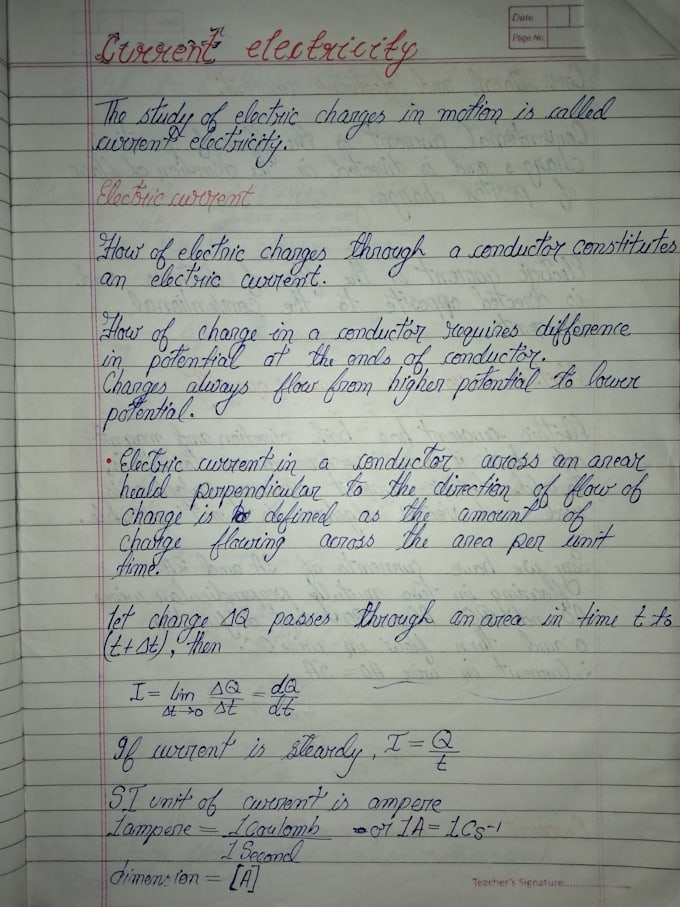 Date
Page No.
Current electricity
The study of electric charges in motion is called
current electricity.
Electric current
Flow of electric charges through a conductor constitutes
an electric current.
Flow of charge in a conductor requires difference
in potential at the ends of conductor.
Charges always flow from higher potential to lower
potential.
• Electric current in a conductor across an arear
heald perpendicular to the direction of flow of
charge is defined as the amount of
charge flowing across the area per unit
time.
let charge ΔQ passes through an area in time t to
(t+Δt), then
I = lim Δt→0 ΔQ/Δt = dQ/dt
If current is steardy, I = Q/t
S.I unit of current is ampere
1ampere = 1Coulomb/1Second or 1A = 1Cs⁻¹
dimension = [A]
Teacher's Signature